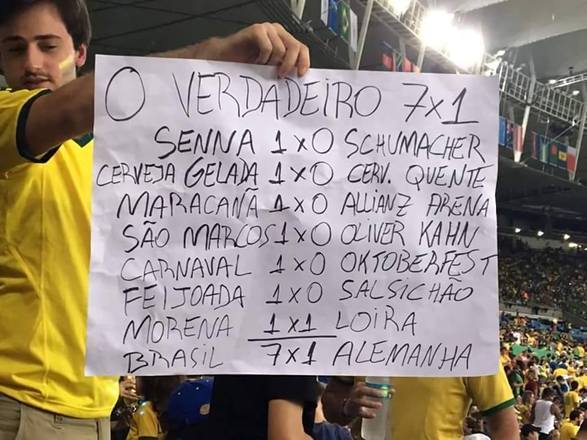 O VERDADEIRO 7x1
SENNA 1x0 SCHUMACHER
CERVEJA GELADA 1x0 CERV. QUENTE
MARACANÃ 1x0 ALLIANZ ARENA
SÃO MARCOS 1x0 OLIVER KAHN
CARNAVAL 1x0 OKTOBERFEST
FEIJOADA 1x0 SALSICHÃO
MORENA 1x1 LOIRA
BRASIL 7x1 ALEMANHA